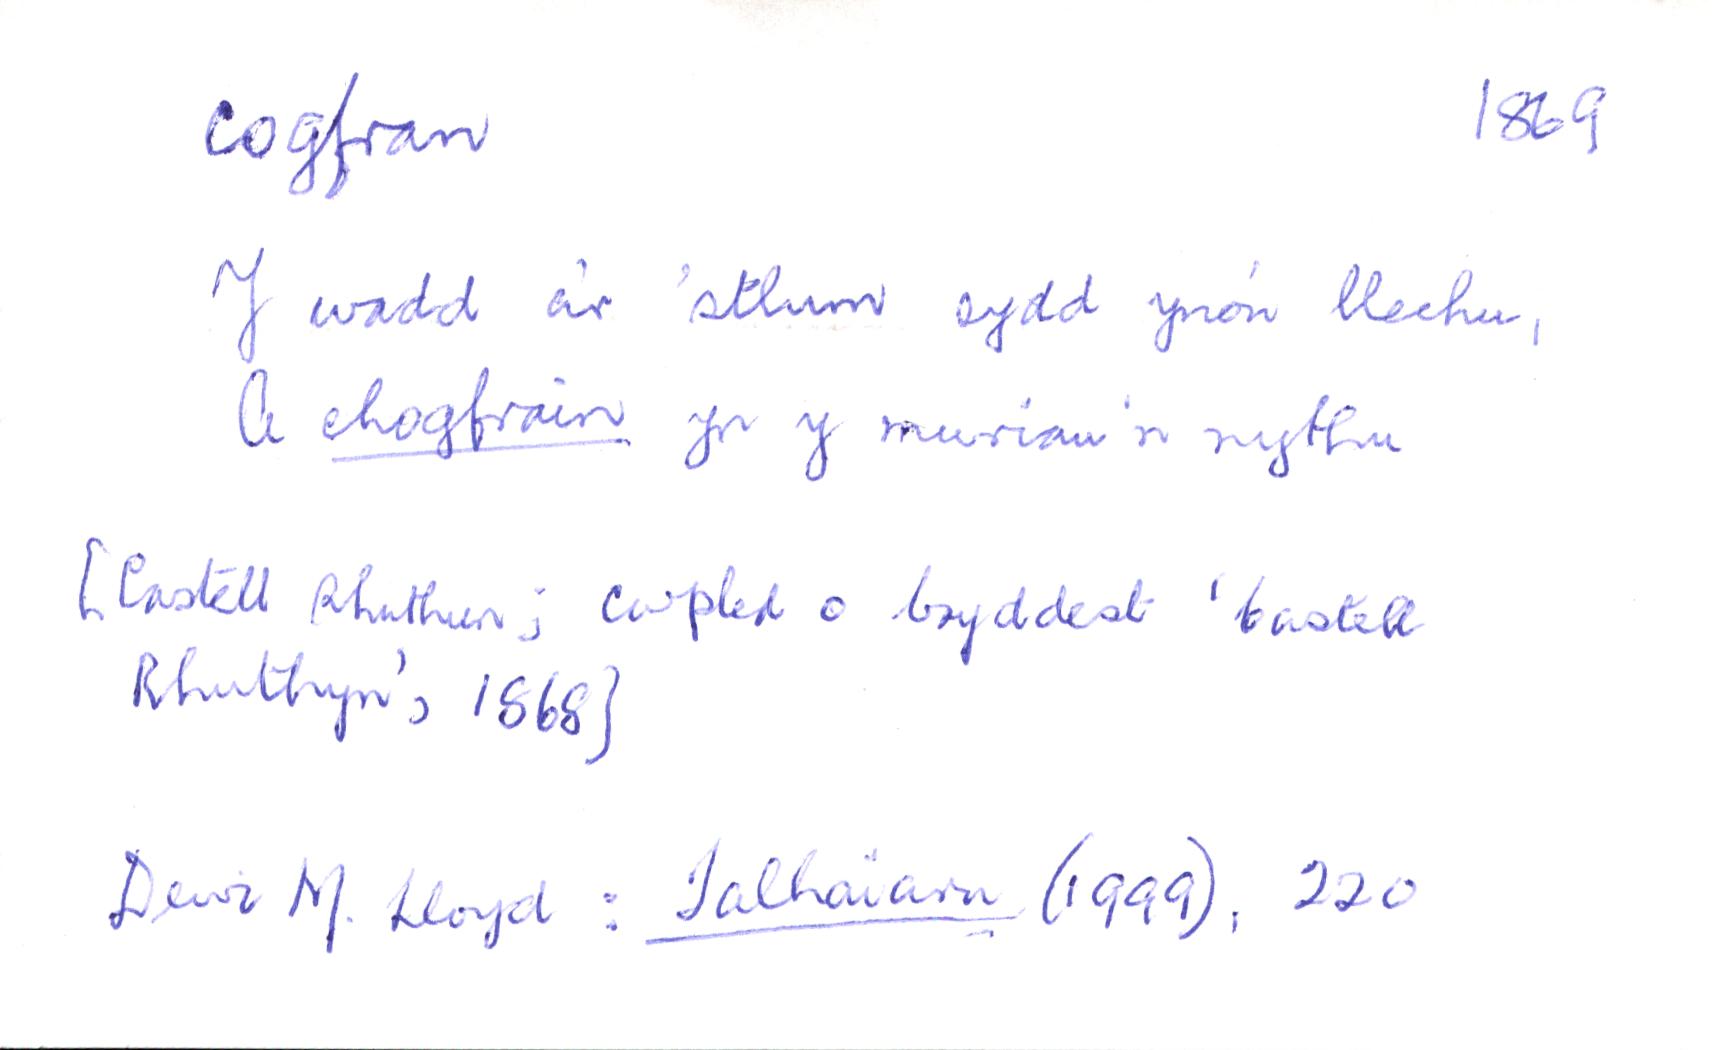 cogfran 1869
Y wadd a'r 'stlum sydd yno'n llechu,
A chogfrain yn y muriau'n nythu
[Castell Rhuthun; cwpled o bryddest 'Castell
Rhuthyn', 1868]
Dewi M. Lloyd : Talhaiarn (1999), 220